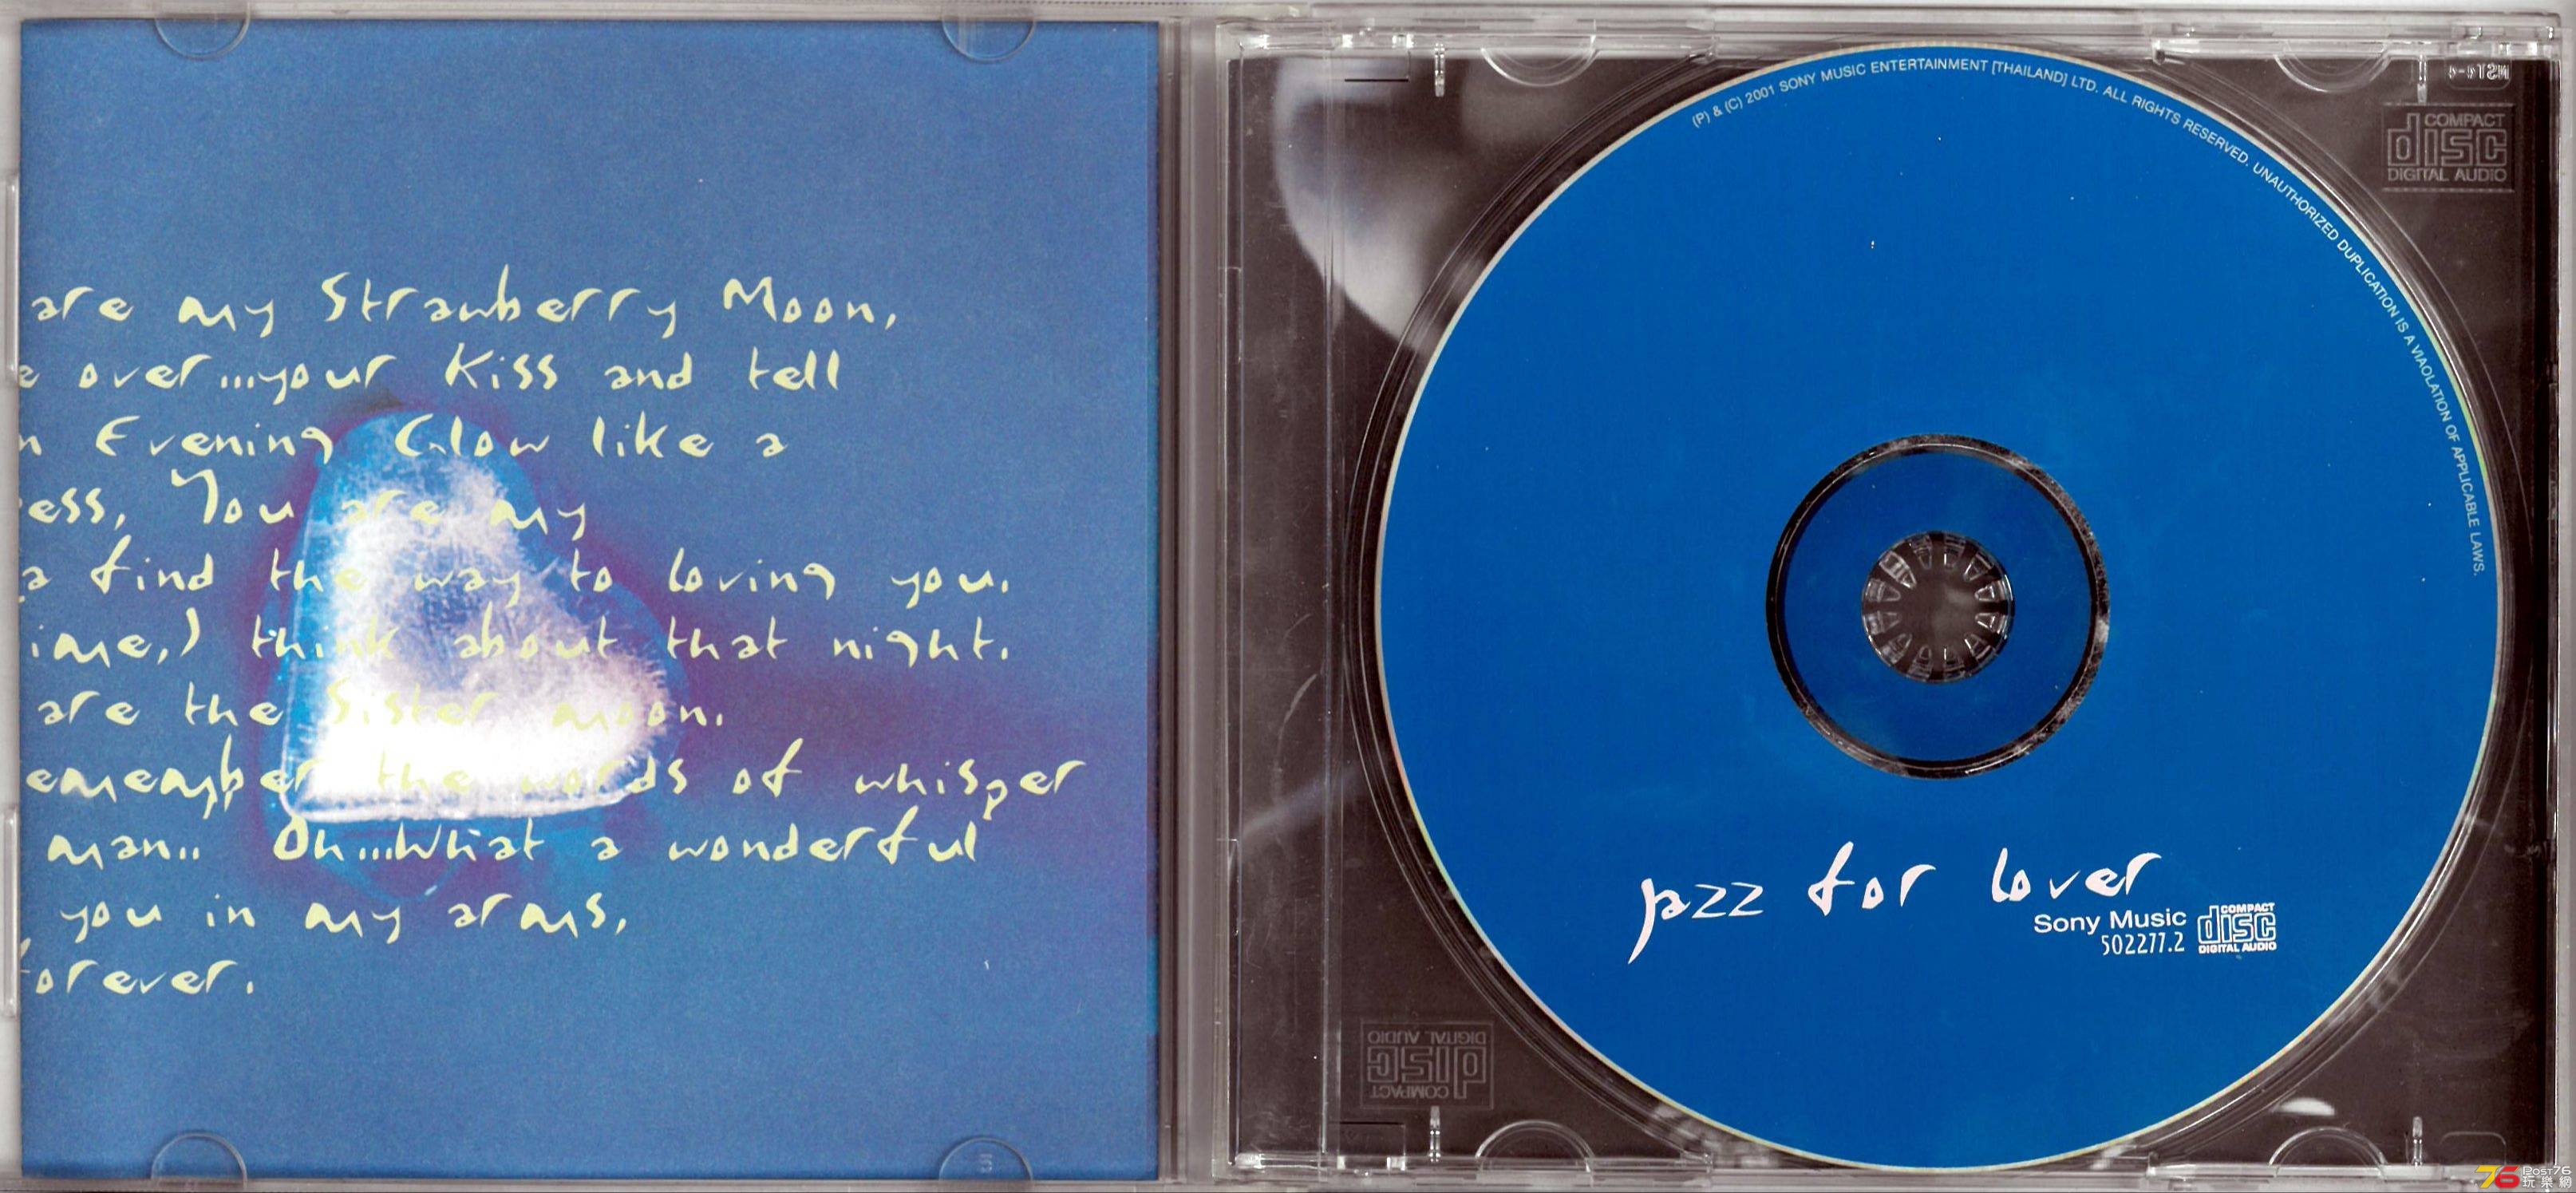 are my Strawberry Moon,
e over...your Kiss and tell
n Evening Glow like a
ess, You are my
a find the way to loving you.
ime,I think about that night.
are the Sister moon.
emember the words of whisper
man.. Oh...What a wonderful
you in my arms,
orever.
(P) & (C) 2001 SONY MUSIC ENTERTAINMENT [THAILAND] LTD. ALL RIGHTS RESERVED. UNAUTHORIZED DUPLICATION IS A VIAOLATION OF APPLICABLE LAWS.
COMPACT
disc
DIGITAL AUDIO
jazz for lover
Sony Music
502277.2
COMPACT
disc
DIGITAL AUDIO
COMPACT
disc
DIGITAL AUDIO
76 Post76
玩樂網